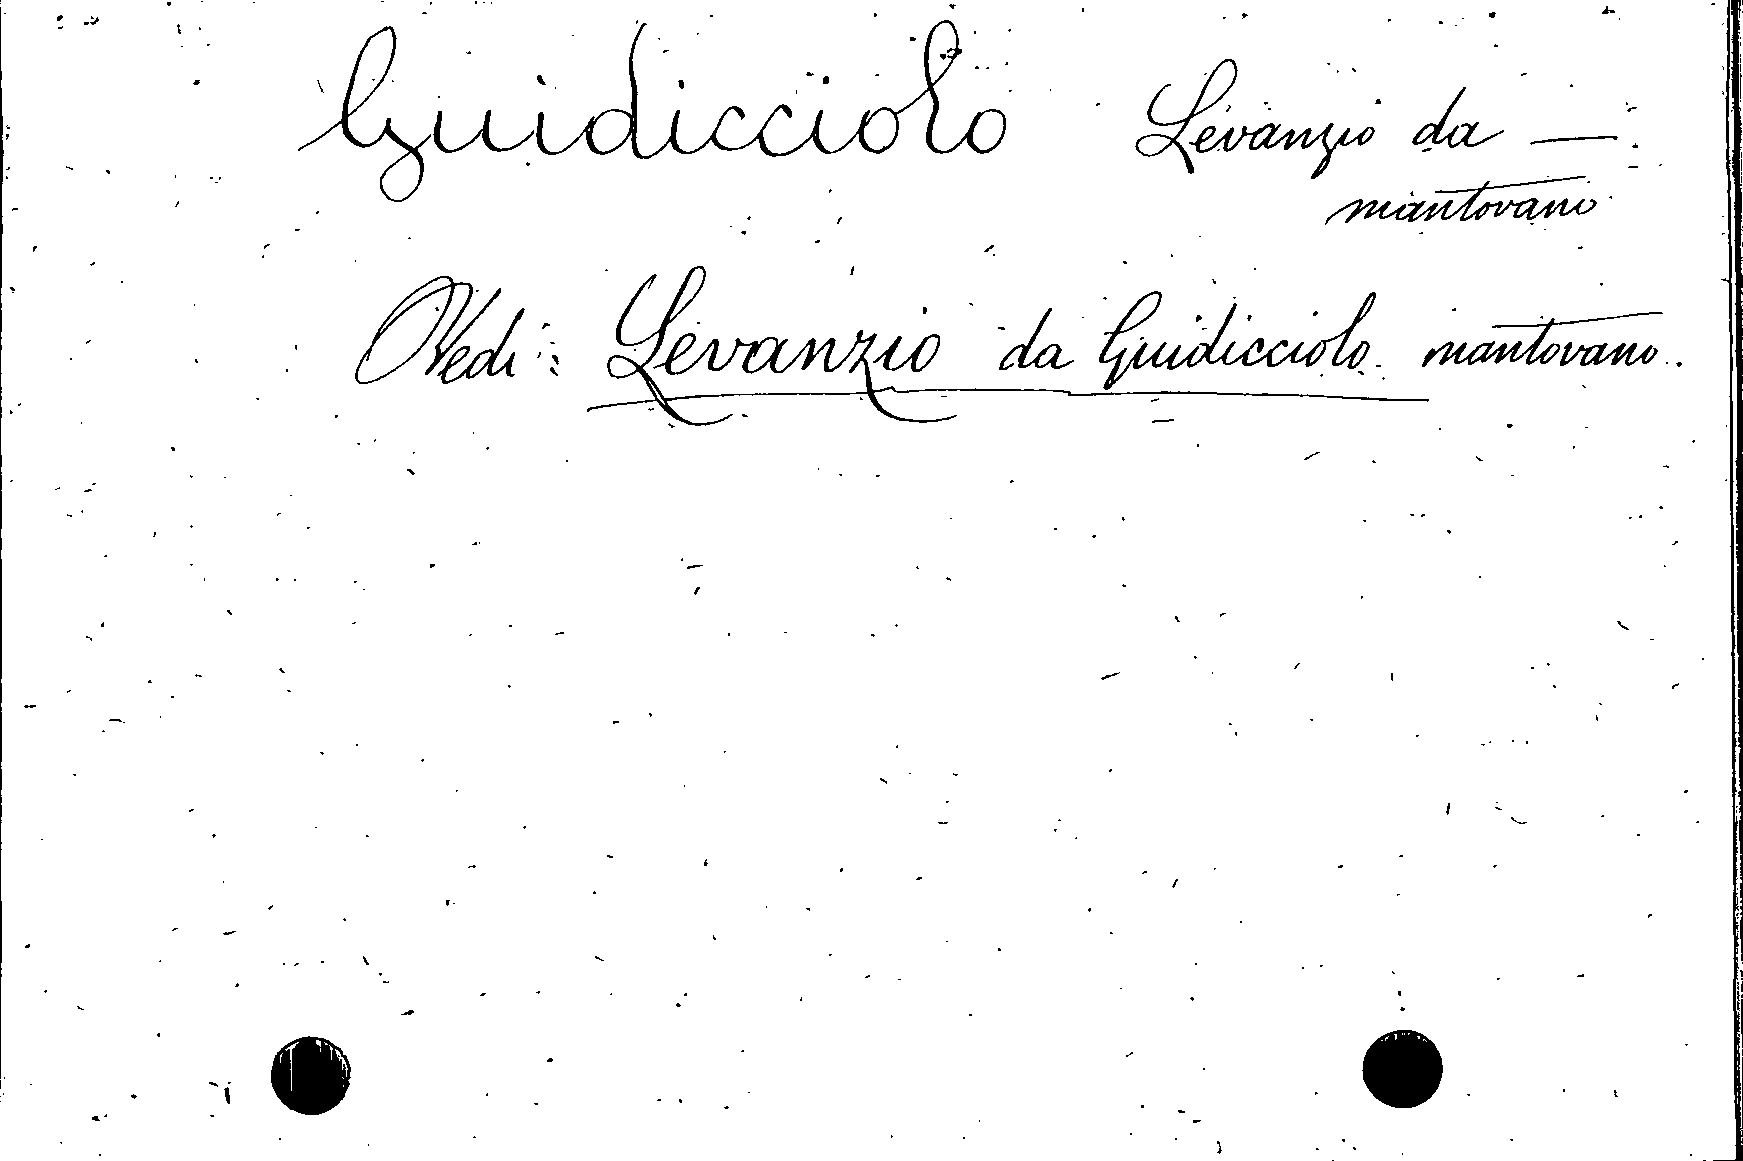 Guidicciolo Levanzio da —
mantovano
Vedi: Levanzio da Guidicciolo mantovano.